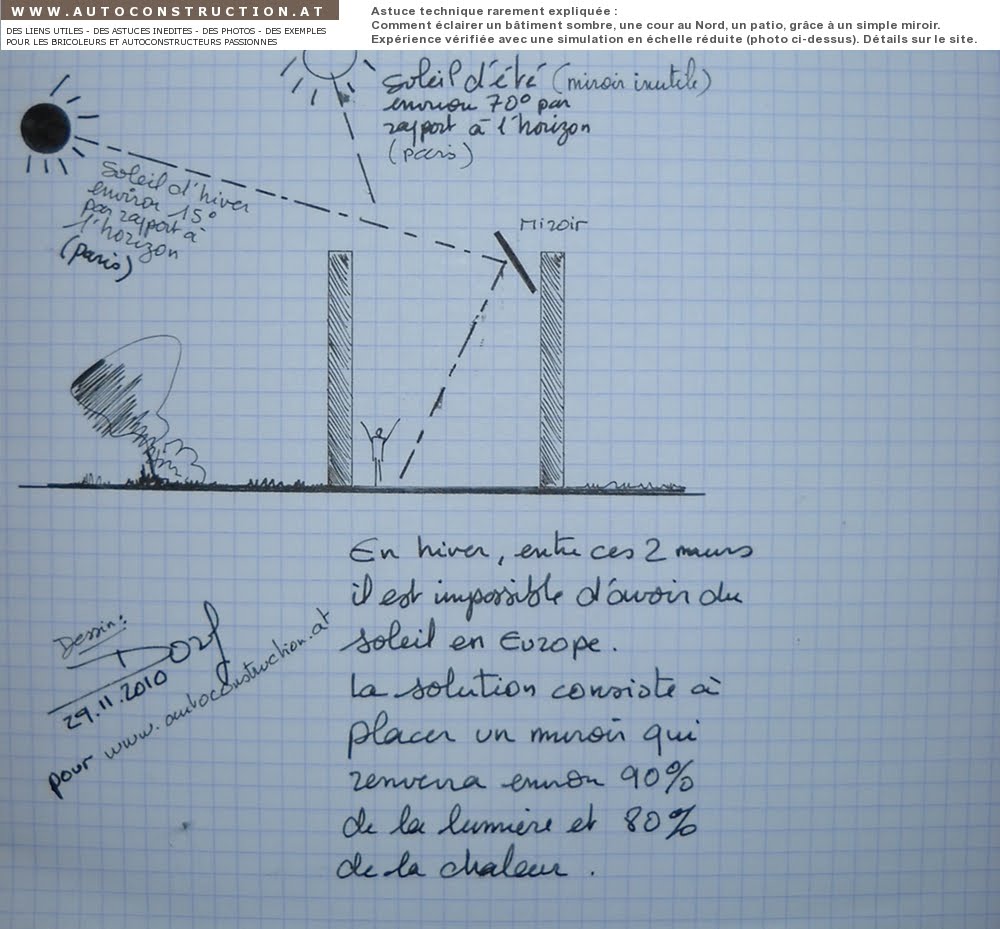 WWW.AUTOCONSTRUCTION.AT
DES LIENS UTILES - DES ASTUCES INEDITES - DES PHOTOS - DES EXEMPLES
POUR LES BRICOLEURS ET AUTOCONSTRUCTEURS PASSIONNES
Astuce technique rarement expliquée :
Comment éclairer un bâtiment sombre, une cour au Nord, un patio, grâce à un simple miroir.
Expérience vérifiée avec une simulation en échelle réduite (photo ci-dessus). Détails sur le site.
Soleil d'été (miroir inutile)
environ 70° par
rapport à l'horizon
(paris)
Soleil d'hiver
environ 15°
par rapport à
l'horizon
(paris)
Miroir
En hiver, entre ces 2 murs
il est impossible d'avoir du
soleil en Europe.
La solution consiste à
placer un miroir qui
renverra environ 90%
de la lumière et 80%
de la chaleur.
Dessin:
29.11.2010
pour www.autoconstruction.at